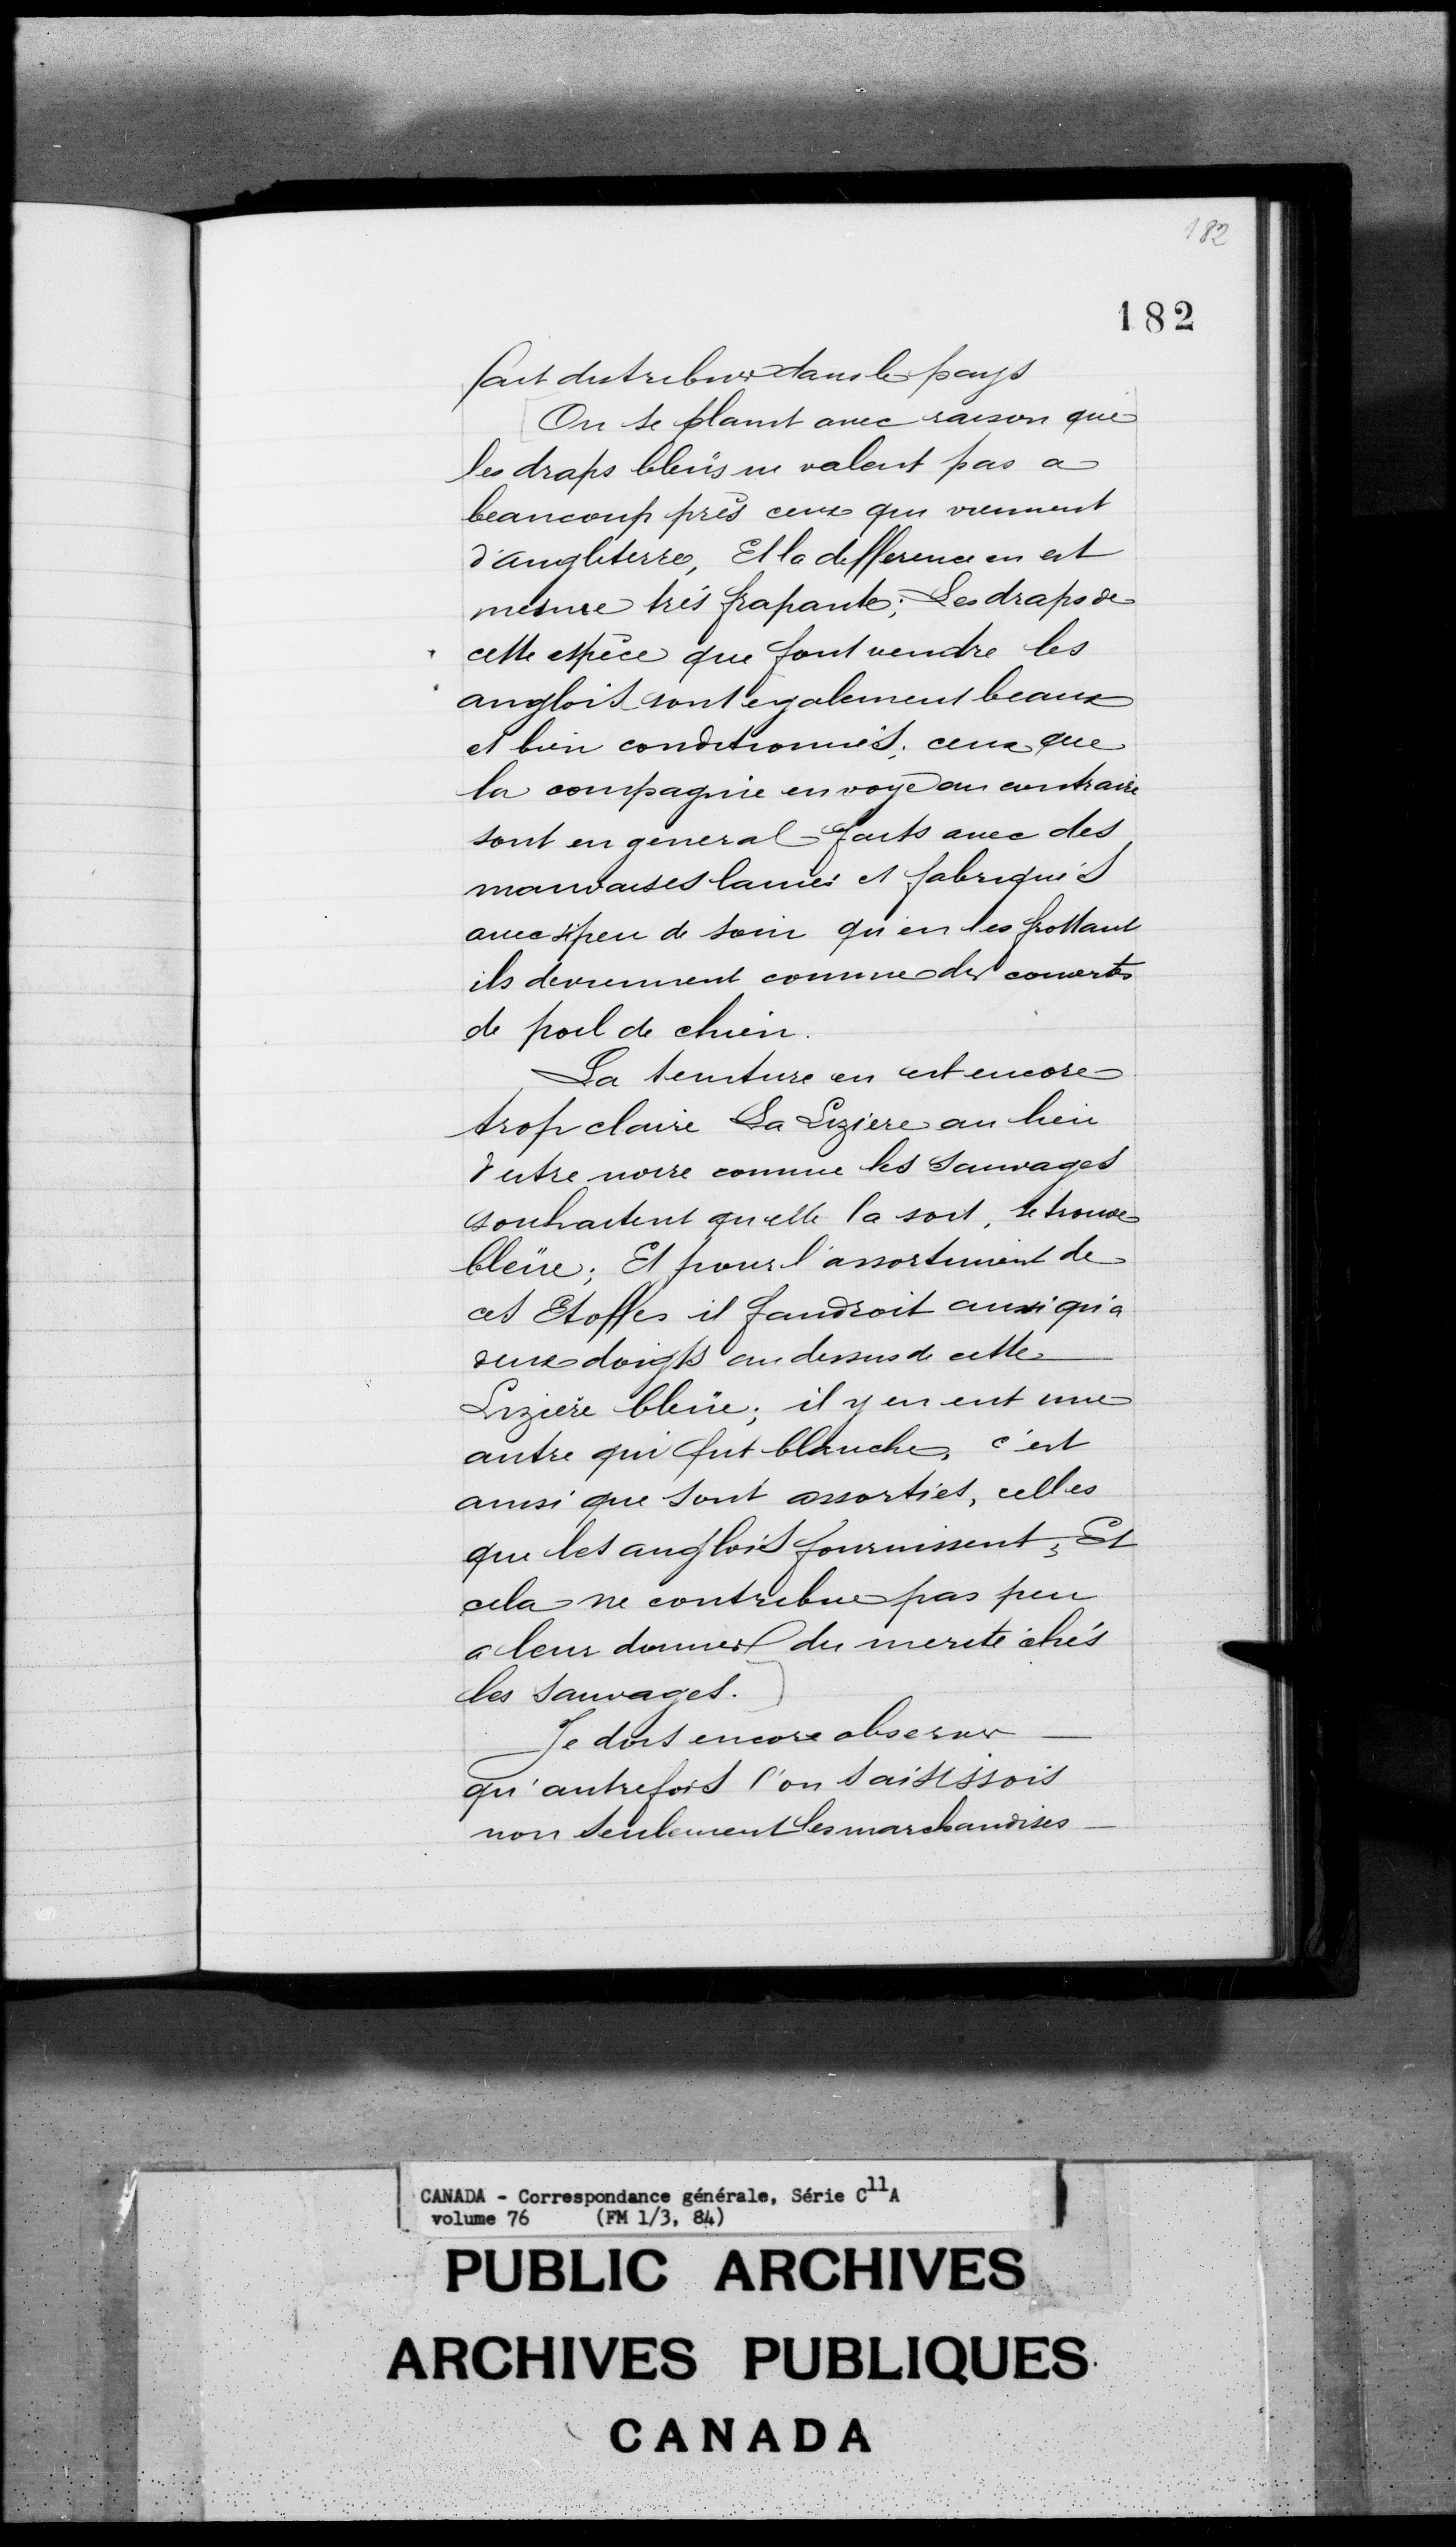 182
182
fait distribuer dans le pays
On se plaint avec raison que
les draps bleüs ne valent pas a
beaucoup près ceux qui viennent
d'angleterre, Et la difference en est
mesme très frapante; Les draps de
cette espèce que font vendre les
anglois sont egalement beaux
et bien conditionnés; ceux que
la compagnie envoye au contraire
sont en general faits avec des
mauvaises laines et fabriqués
avec si peu de soin qu'en les frottant
ils deviennent comme des couvertes
de poil de chien.
La teinture en est encore
trop claire La Liziere au lieu
d'estre noire comme les Sauvages
souhaitent qu'elle la soit, se trouve
bleüe; Et pour l'assortiment de
ces Etoffes il faudroit aussi qu'a
deux doigts au dessus de cette
Liziere bleüe; il y en eut une
autre qui fut blanche, c'est
ainsi que sont assorties, celles
que les anglois fournissent; Et
cela ne contribue pas peu
a leur donner du merite chés
les Sauvages.
Je dois encore observer
qu'autrefois l'on saisissois
non seulement les marchandises
CANADA - Correspondance générale, Série C11A
volume 76 (FM 1/3, 84)
PUBLIC ARCHIVES
ARCHIVES PUBLIQUES
CANADA